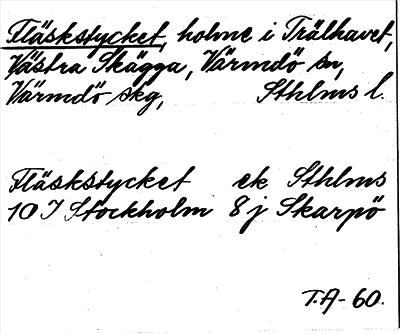 Fläskstycket, holme i Trälhavet,
Västra Skägga, Värmdö sn,
Värmdö skg, Sthlms l.
Fläskstycket ek Sthlms
10 I Stockholm 8 j Skarpö
T.A-60.